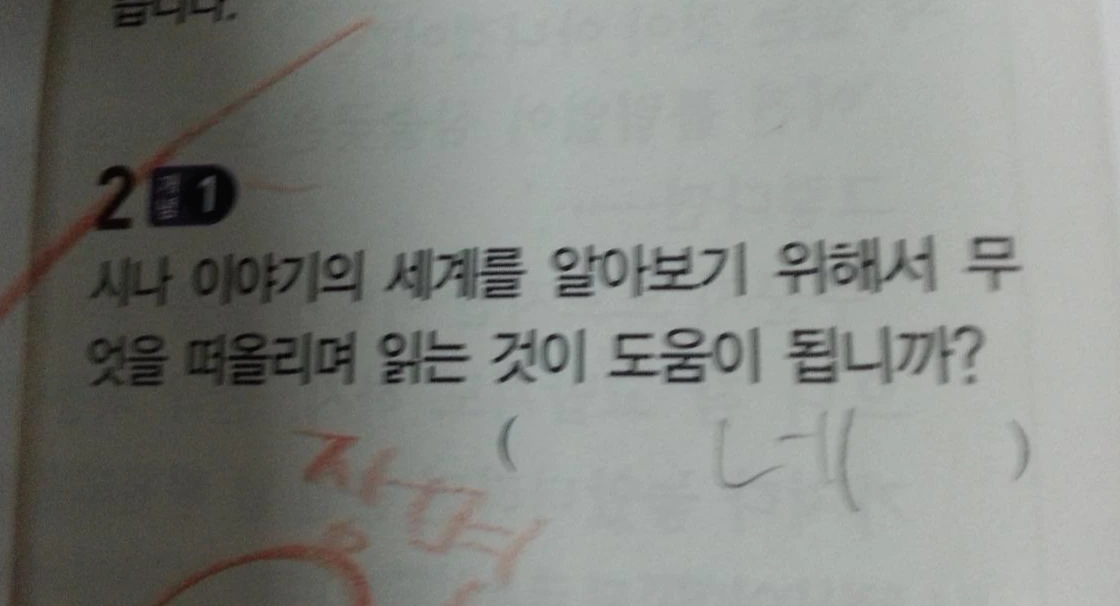 습니다.
2 1
시나 이야기의 세계를 알아보기 위해서 무
엇을 떠올리며 읽는 것이 도움이 됩니까?
( 네 )
장면